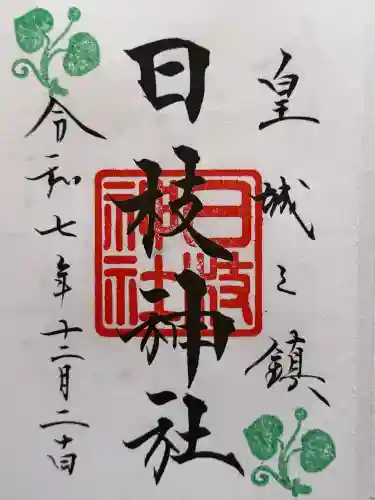 皇城之鎮
日枝神社
日枝神社
令和七年十二月二十日